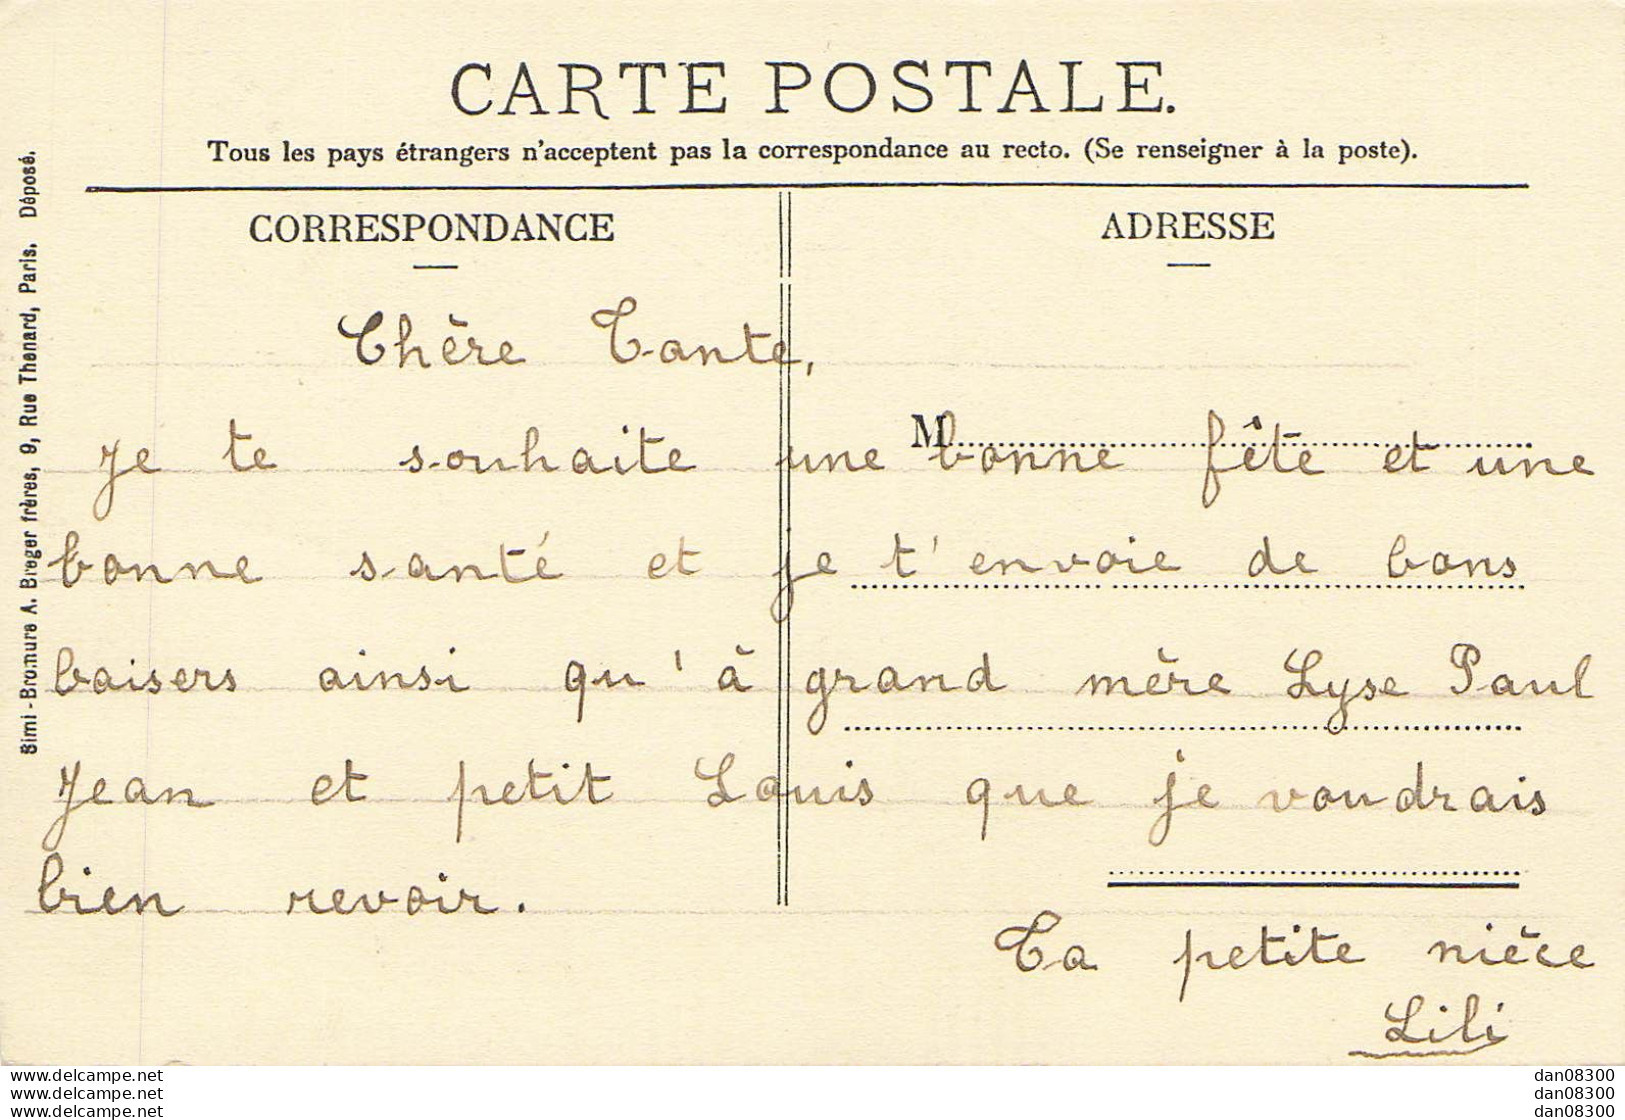 CARTE POSTALE.
Tous les pays étrangers n'acceptent pas la correspondance au recto. (Se renseigner à la poste).
CORRESPONDANCE
ADRESSE
Simi-Bromure A. Breger frères, 9, Rue Thenard, Paris. Déposé.
M
Chère Tante,
Je te souhaite une bonne fête et une
bonne santé et je t'envoie de bons
baisers ainsi qu'à grand mère Lyse Paul
Jean et petit Louis que je voudrais
bien revoir.
Ta petite nièce
Lili
www.delcampe.net
www.delcampe.net
www.delcampe.net
dan08300
dan08300
dan08300